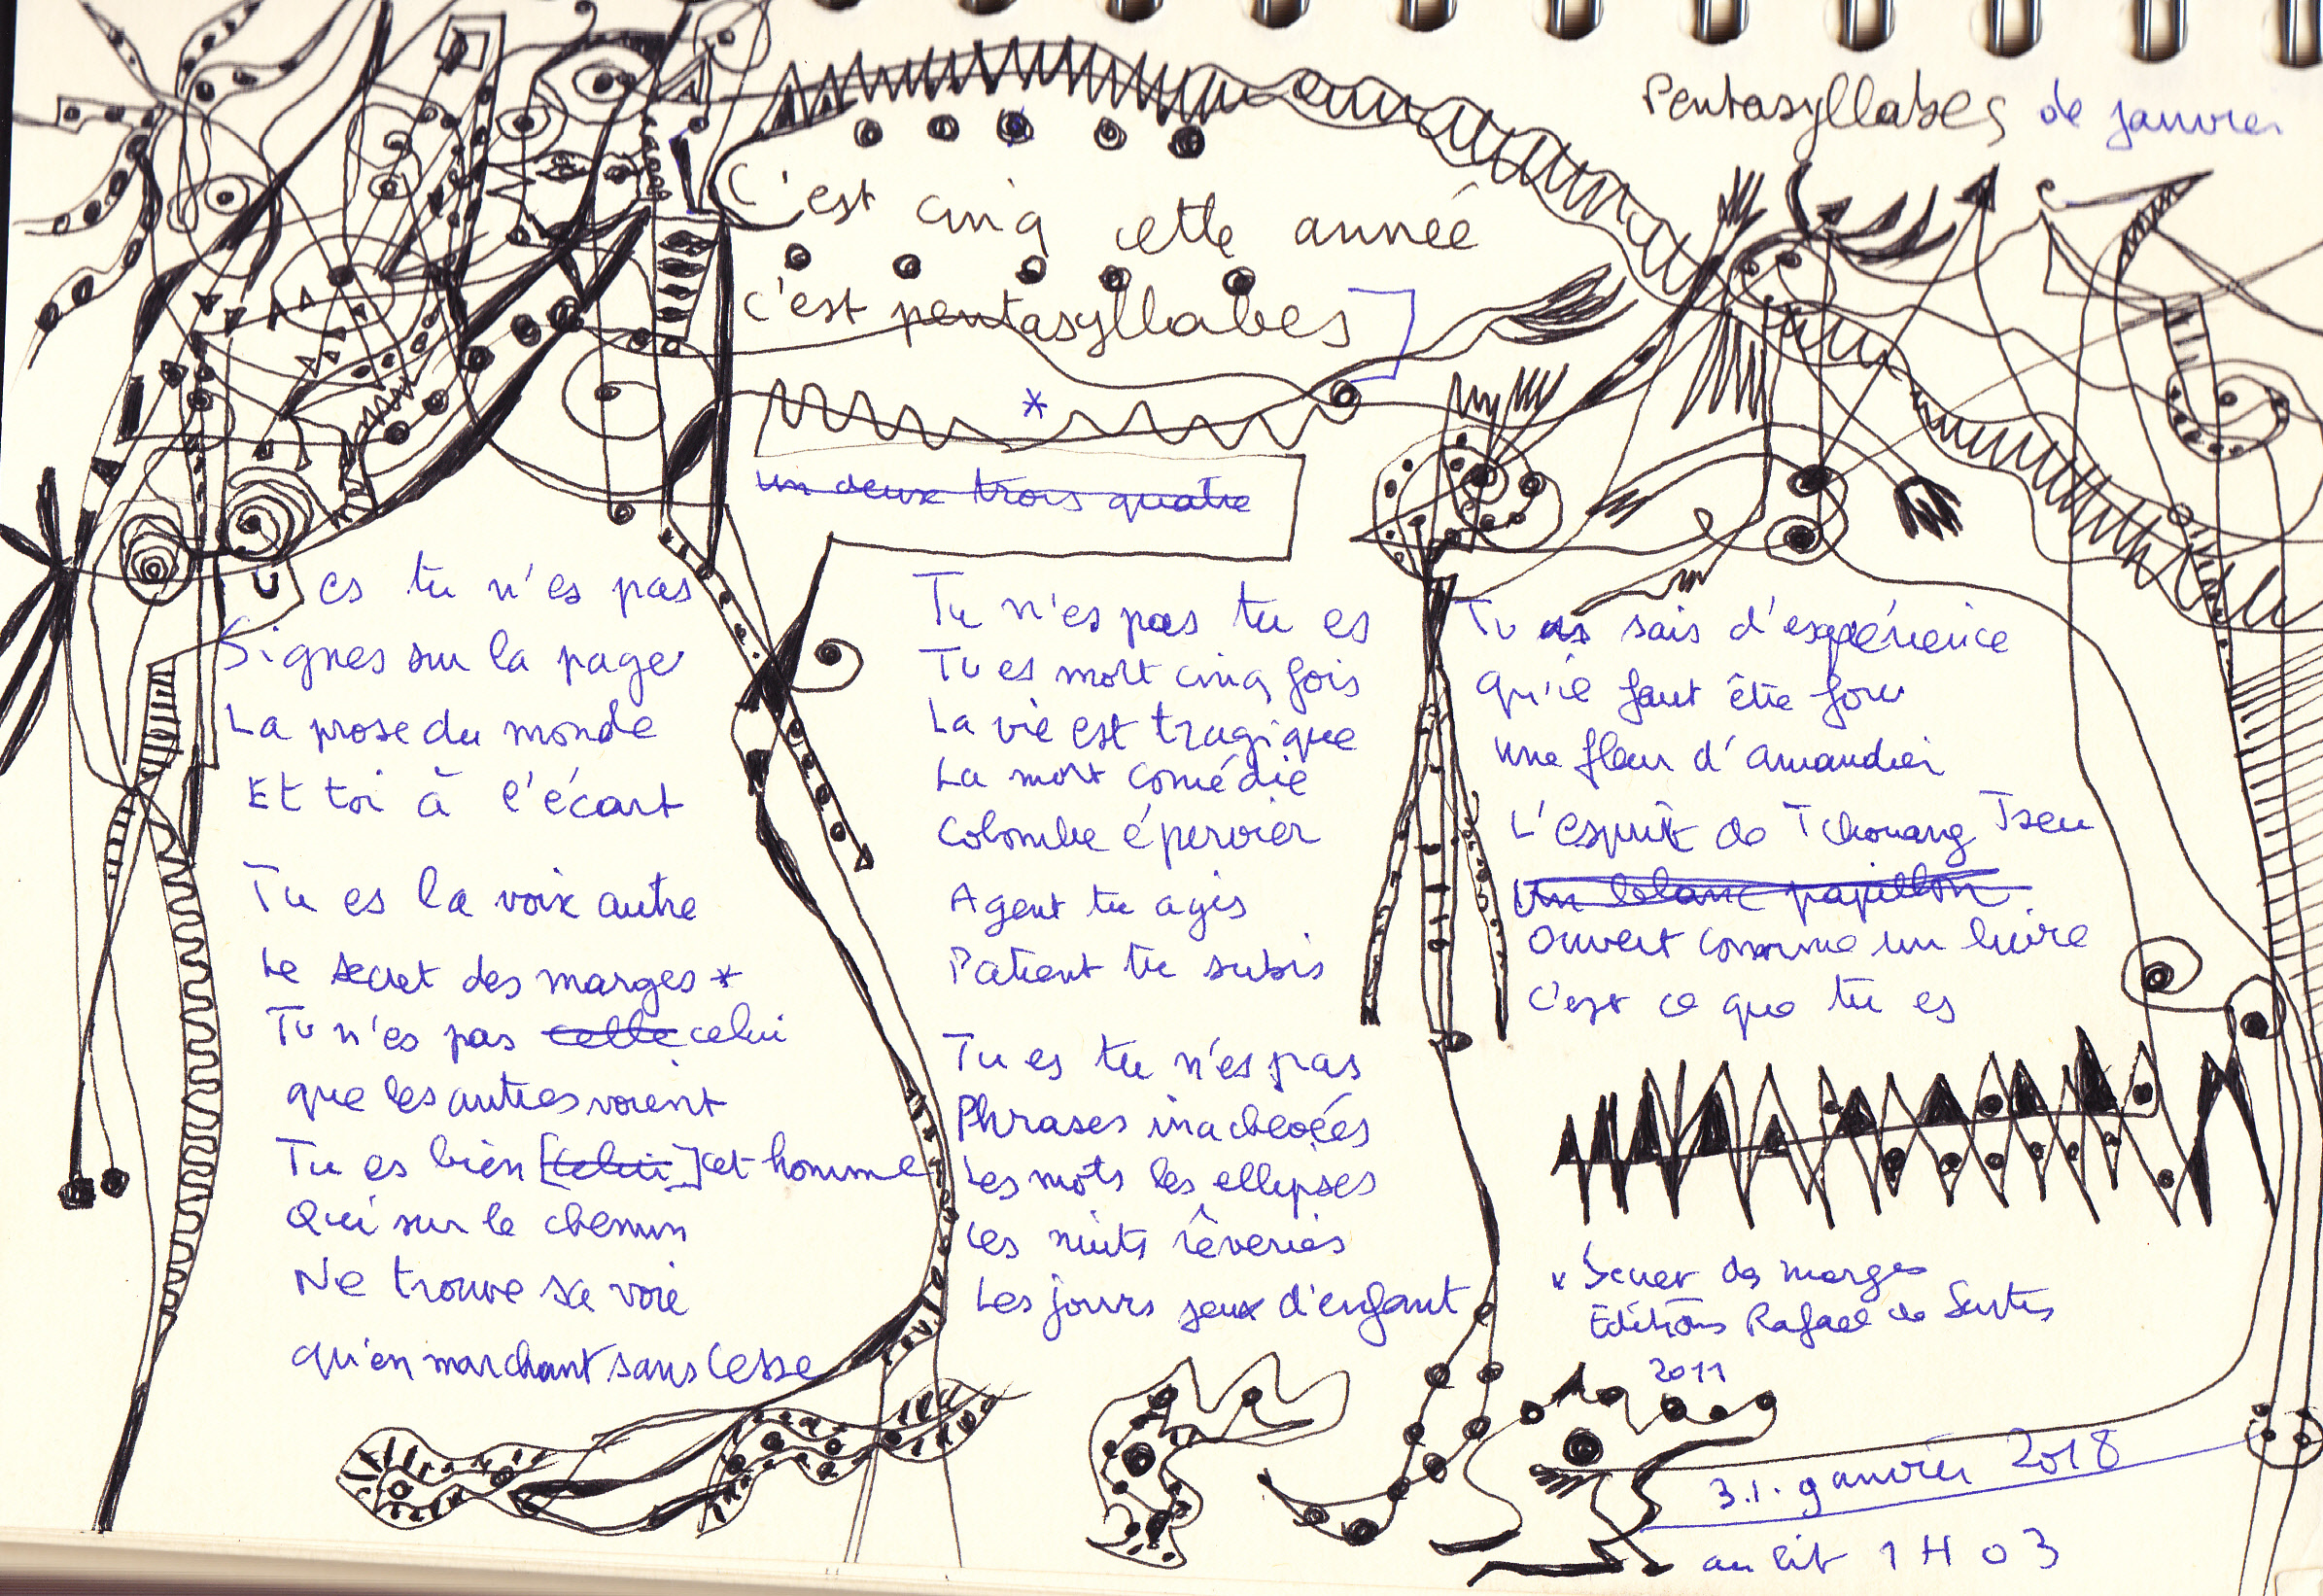 Pentasyllabes de janvier
C'est cinq cette année
c'est pentasyllabes
*
un deux trois quatre
Tu es tu n'es pas
Signes sur la page
La prose du monde
Et toi à l'écart
Tu es la voix autre
Le secret des marges *
Tu n'es pas celle celui
que les autres voient
Tu es bien [celui] cet homme
Qui sur le chemin
Ne trouve sa voie
qu'en marchant sans cesse
Tu n'es pas tu es
Tu es mort cinq fois
La vie est tragique
La mort comédie
Colombe épervier
Agent tu agis
Patient tu subis
Tu es tu n'es pas
Phrases inachevées
Les mots les ellipses
Les nuits rêveries
Les jours jeux d'enfant
Tu as sais d'expérience
Qu'il faut être fou
une fleur d'amandier
L'esprit de Tchouang Tseu
Un blanc papillon
Ouvert comme un livre
C'est ce que tu es
* Secret des marges
Editions Rafael de Surtis
2011
3.1. janvier 2018
au lit 1 H 03